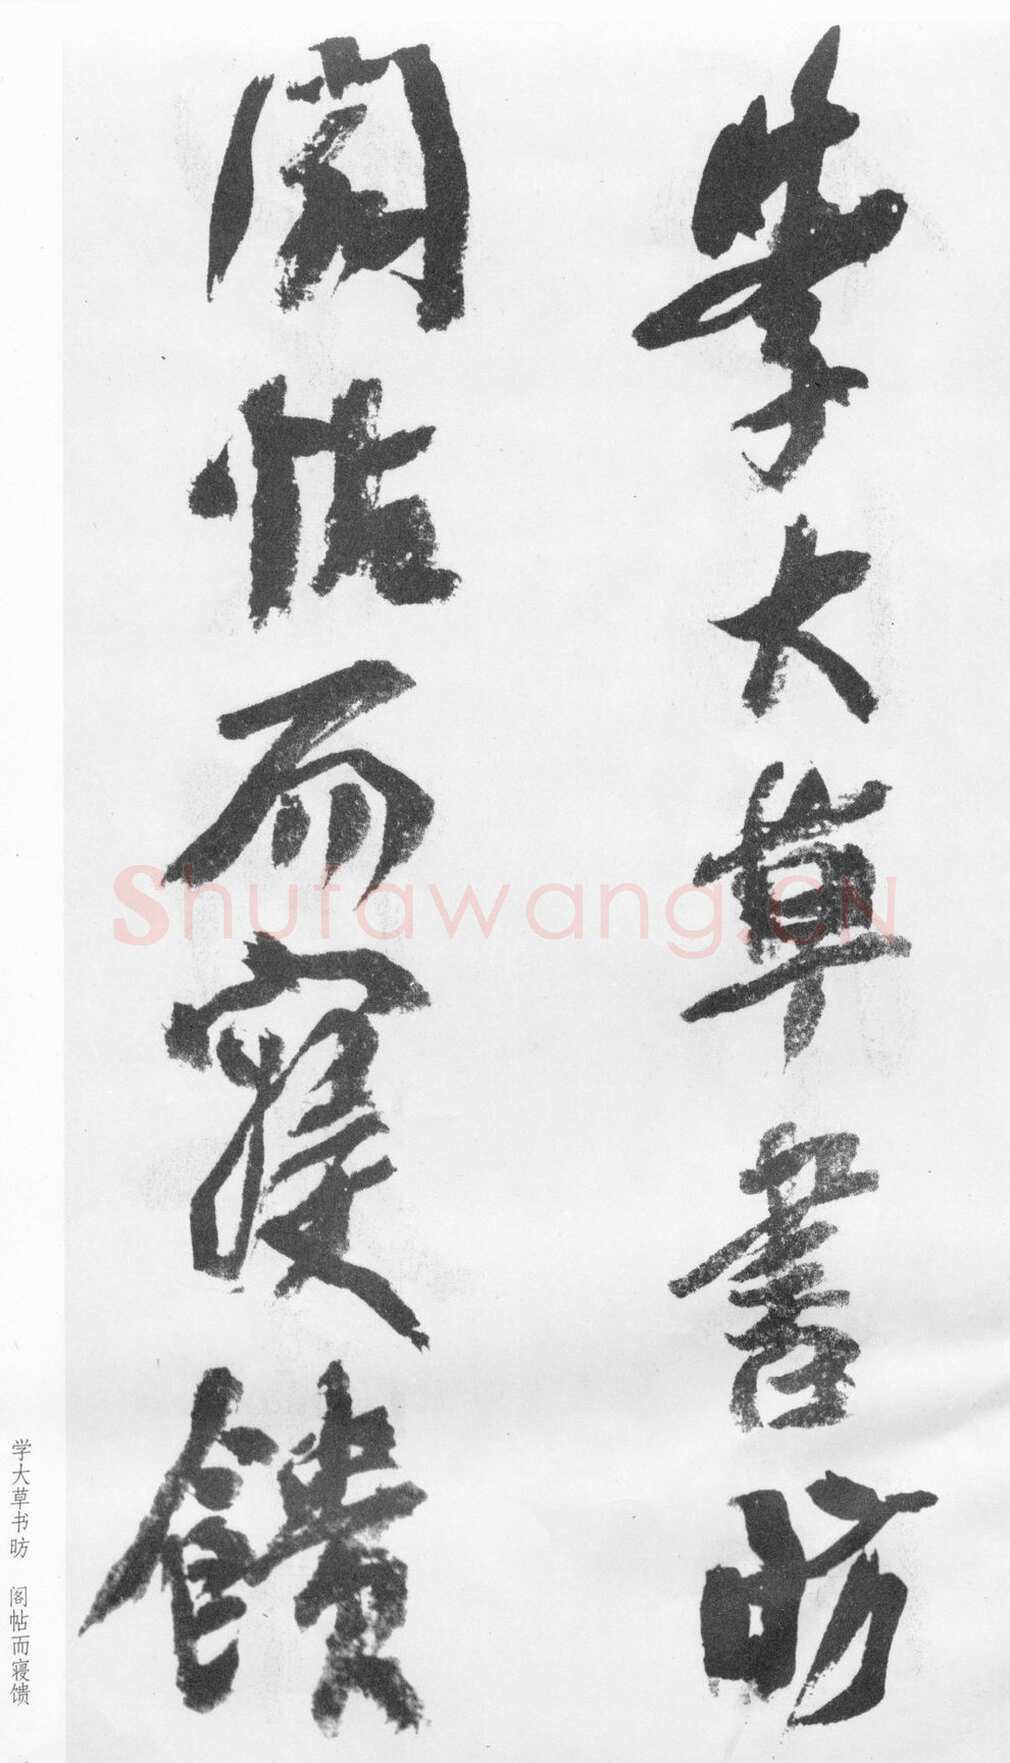 学大草書昉
閣帖而寢饋
学大草书昉 阁帖而寝馈
Shufawang.CN